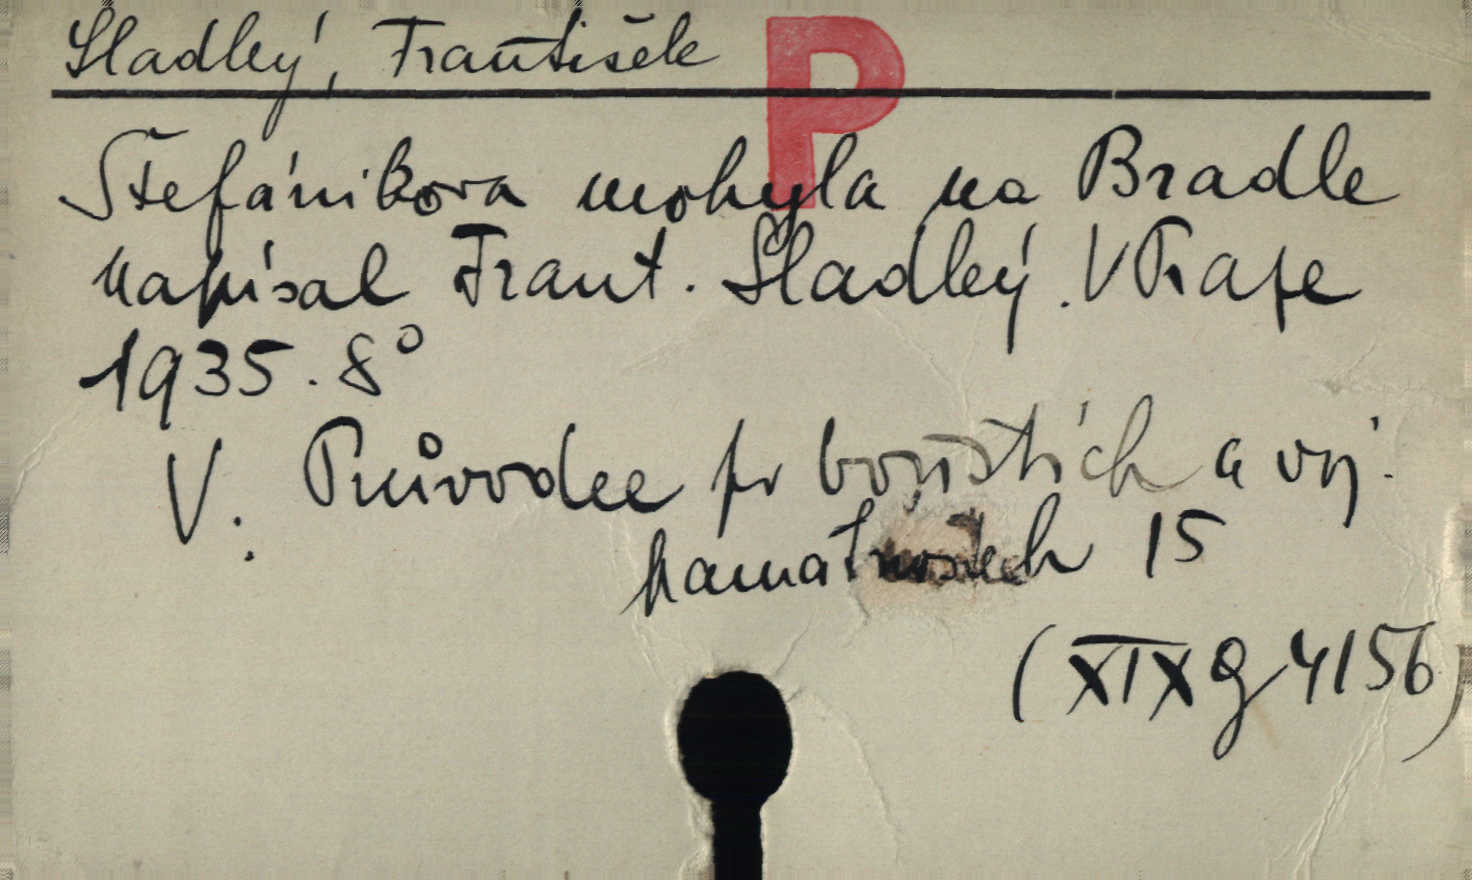 Sladký, František
P
Štefánikova mohyla na Bradle
napísal Frant. Sladký. V Praze
1935. 8°
V: Průvodce po bojištích a voj.
památnostech 15
(XIX g 4156)